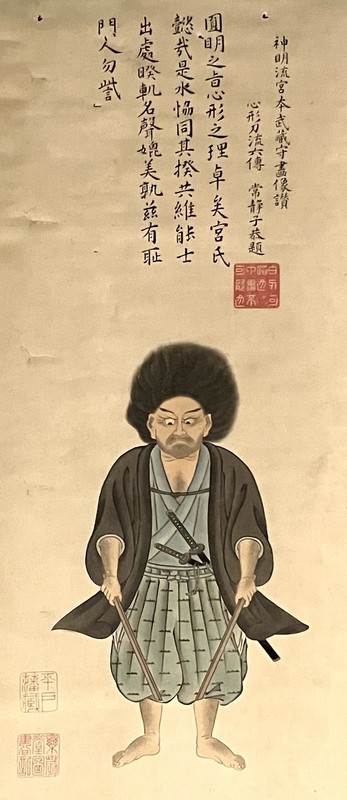 神明流宮本武藏守畫像讃
心形刀流六傳 常靜子恭題
圓明之旨心形之理卓矣宮氏
懿哉是水恊同其揆共維能士
出處暌軌名聲媲美孰茲有耻
門人勿訾」
平戸藩藏
樂歳堂圖書記